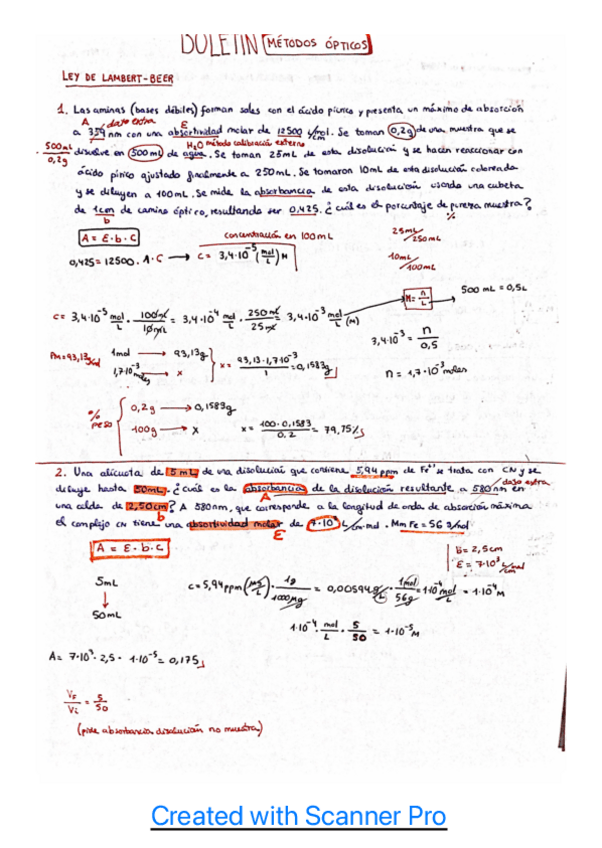 BOLETIN [MÉTODOS ÓPTICOS]
LEY DE LAMBERT-BEER
1. Las aminas (bases débiles) forman sales con el ácido pícrico y presenta un máximo de absorción
A dato extra E
a 359 nm con una absortividad molar de 12500 L/mol. Se toman 0,2g de una muestra que se
500mL/0,2g
H₂O método calibración externo
disuelve en 500ml de agua. Se toman 25mL de esta disolución y se hacen reaccionar con
ácido pícrico ajustado finalmente a 250mL. Se tomaron 10mL de esta disolución coloreada
y se diluyen a 100mL. Se mide la absorbancia de esta disolución usando una cubeta
de 1cm de camino óptico, resultando ser 0,425. ¿cuál es el porcentaje de pureza muestra?
b %
A = ε·b·C
concentración en 100mL
25mL/250mL
0,425 = 12500 · 1 · C → C = 3,4·10⁻⁵ (mol/L) M
10mL/100mL
M = n/L → 500 mL = 0,5L
C = 3,4·10⁻⁵ mol/L · 100ml/10ml = 3,4·10⁻⁴ mol/L · 250ml/25ml = 3,4·10⁻³ mol/L (M)
3,4·10⁻³ = n/0,5
Pm = 93,13 g/mol
1mol → 93,13g
1,7·10⁻³ moles → x
x = 93,13·1,7·10⁻³/1 = 0,1583g
n = 1,7·10⁻³ moles
% peso
0,2g → 0,1583g
100g → x
x = 100·0,1583/0,2 = 79,15%
2. Una alícuota de 5mL de una disolución que contiene 5,94 ppm de Fe³⁺ se trata con CN y se
diluye hasta 50mL. ¿cuál es la absorbancia de la disolución resultante a 580nm en
A dato extra
una celda de 2,50cm? A 580nm, que corresponde a la longitud de onda de absorción máxima
b
el complejo CN tiene una absortividad molar de 7·10³ L/cm·mol. Mm Fe = 56 g/mol
ε
A = ε·b·C
b = 2,5cm
ε = 7·10³ L/mol·cm
5mL
↓
50mL
C = 5,94ppm (μg/mL) · 1g/1000μg = 0,00594 g/L · 1mol/56g = 1·10⁻⁴ mol/L = 1·10⁻⁴M
1·10⁻⁴ mol/L · 5/50 = 1·10⁻⁵M
A = 7·10³ · 2,5 · 1·10⁻⁵ = 0,175
VF/Vi = 5/50
(pide absorbancia disolución no muestra)
Created with Scanner Pro